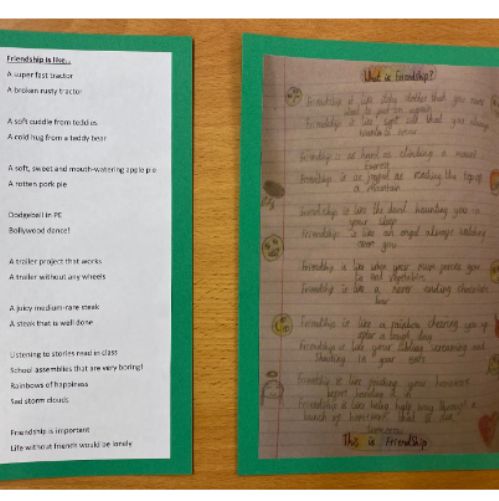 Friendship is like...
A super fast tractor
A broken rusty tractor
A soft cuddle from teddies
A cold hug from a teddy bear
A soft, sweet and mouth-watering apple pie
A rotten pork pie
Dodgeball in PE
Bollywood dance!
A trailer project that works
A trailer without any wheels
A juicy medium-rare steak
A steak that is well done
Listening to stories read in class
School assemblies that are very boring!
Rainbows of happiness
Sad storm clouds
Friendship is important
Life without friends would be lonely
What is Friendship?
Friendship is like itchy clothes that you never
want to put on again
Friendship is like soft silk that you always
want to wear
Friendship is as hard as climbing a mount
Everest
Friendship is as joyful as reaching the top of
a mountain
Friendship is like the devil haunting you in
your sleep
Friendship is like an angel always watching
over you
Friendship is like when your mum forces you
to eat vegetables
Friendship is like a never ending chocolate
bar
Friendship is like a rainbow cheering you up
after a tough day
Friendship is like your sibling screaming and
shouting in your ears
Friendship is like finishing your homework
before handing it in
Friendship is like being half way through a
bunch of homework that is due
tomorrow
This is Friendship